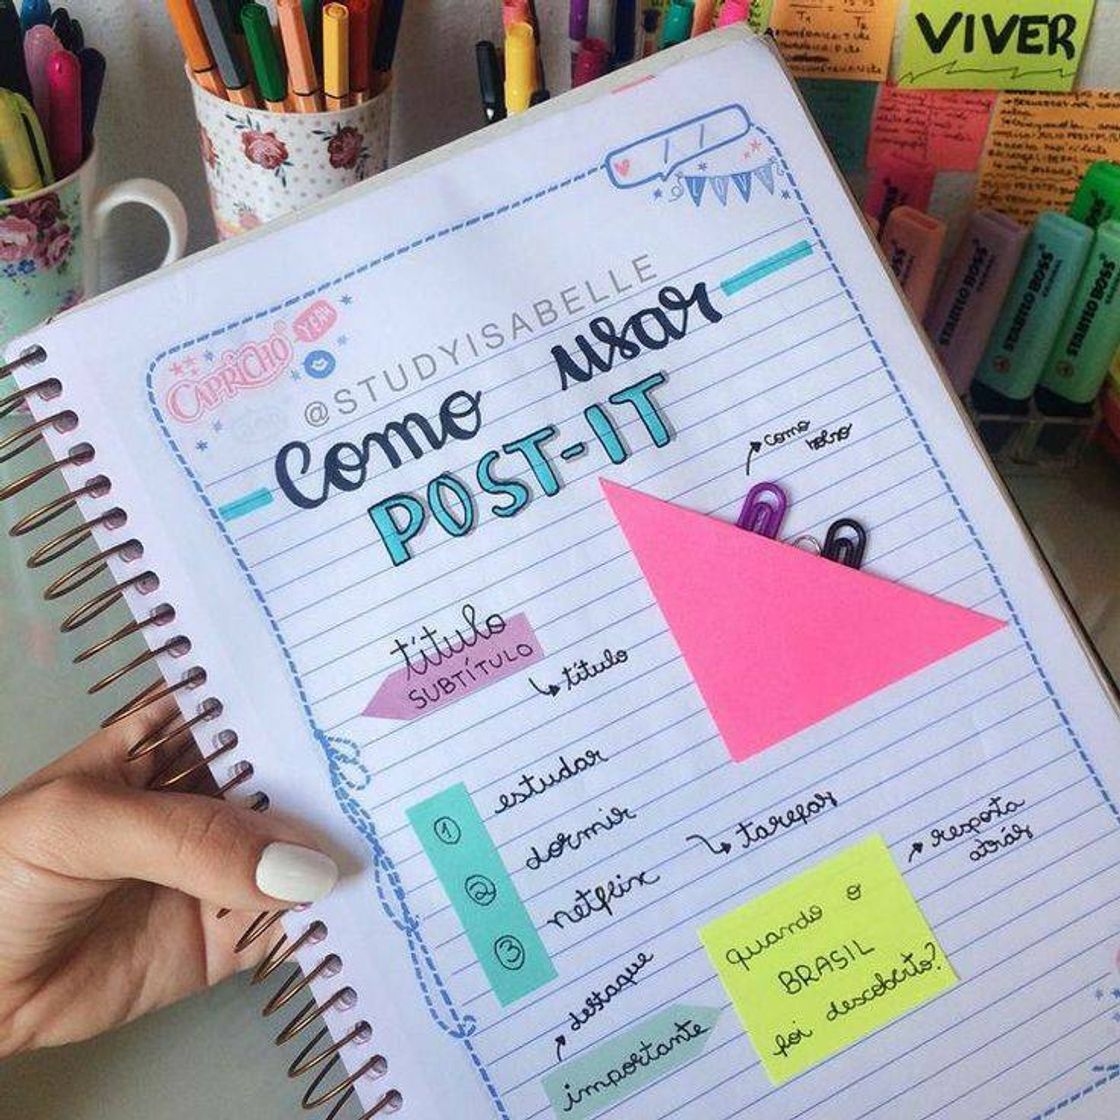 VIVER
STABILO BOSS
STABILO BOSS
STABILO BOSS
LOVE
CAPRICHO
YEAH
@STUDYISABELLE
como usar
POST-IT
como bolso
título
SUBTÍTULO
título
1 estudar
2 dormir
3 netflix
tarefas
resposta
atrás
quando o
BRASIL
foi descoberto?
destaque
importante